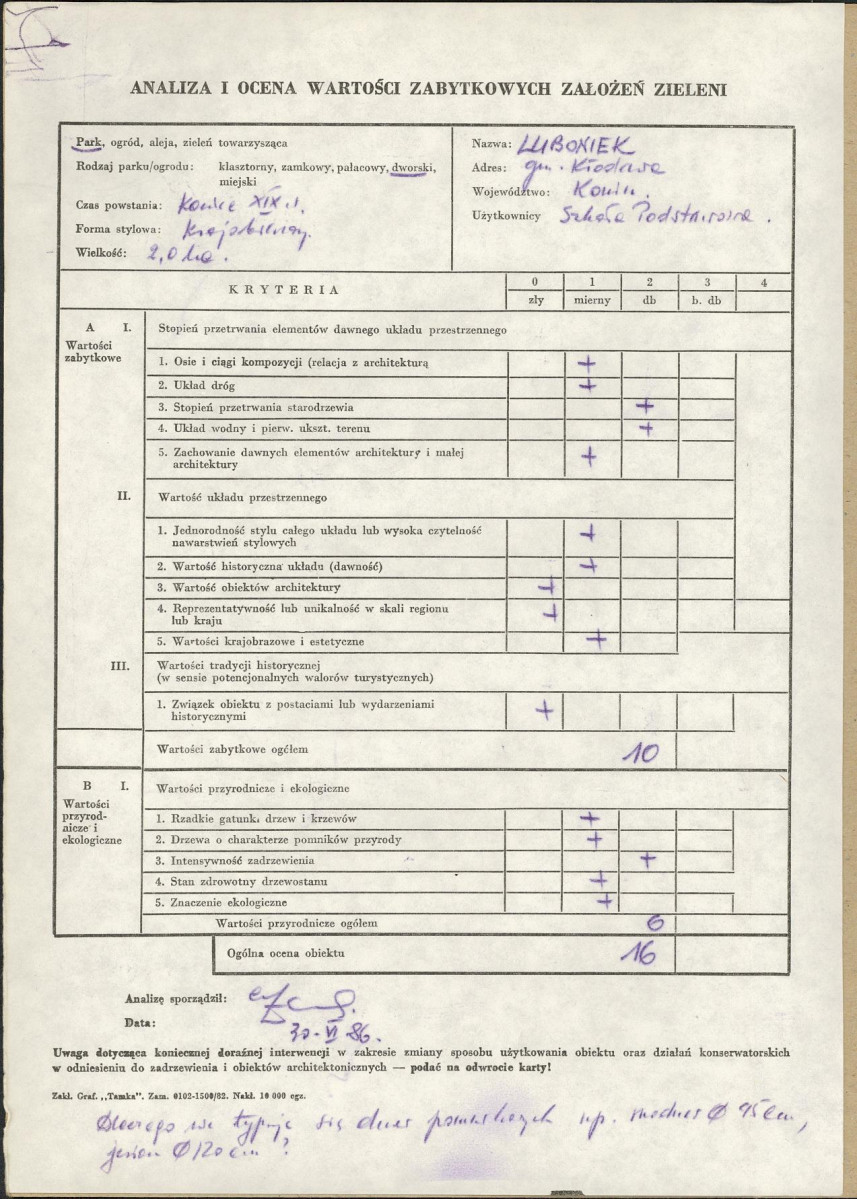 ANALIZA I OCENA WARTOŚCI ZABYTKOWYCH ZAŁOŻEŃ ZIELENI
Park, ogród, aleja, zieleń towarzysząca
Rodzaj parku/ogrodu: klasztorny, zamkowy, pałacowy, dworski,
miejski
Czas powstania: koniec XIX w.
Forma stylowa: Krajobrazowy.
Wielkość: 2,0 ha.
Nazwa: LUBONIEK
Adres: gm. Kłodawa
Województwo: Konin.
Użytkownicy Szkoła Podstawowa.
KRYTERIA
0 1 2 3 4
zły mierny db b. db
A I. Stopień przetrwania elementów dawnego układu przestrzennego
Wartości
zabytkowe
1. Osie i ciągi kompozycji (relacja z architekturą +
2. Układ dróg +
3. Stopień przetrwania starodrzewia +
4. Układ wodny i pierw. ukszt. terenu +
5. Zachowanie dawnych elementów architektury i małej
architektury +
II. Wartość układu przestrzennego
1. Jednorodność stylu całego układu lub wysoka czytelność
nawarstwień stylowych +
2. Wartość historyczna układu (dawność) +
3. Wartość obiektów architektury +
4. Reprezentatywność lub unikalność w skali regionu
lub kraju +
5. Wartości krajobrazowe i estetyczne +
III. Wartości tradycji historycznej
(w sensie potencjonalnych walorów turystycznych)
1. Związek obiektu z postaciami lub wydarzeniami
historycznymi +
Wartości zabytkowe ogółem 10
B I. Wartości przyrodnicze i ekologiczne
Wartości
przyrod-
nicze i
ekologiczne
1. Rzadkie gatunki drzew i krzewów +
2. Drzewa o charakterze pomników przyrody +
3. Intensywność zadrzewienia +
4. Stan zdrowotny drzewostanu +
5. Znaczenie ekologiczne +
Wartości przyrodnicze ogółem 6
Ogólna ocena obiektu 16
Analizę sporządził:
Data: 30-VI 86.
Uwaga dotycząca koniecznej doraźnej interwencji w zakresie zmiany sposobu użytkowania obiektu oraz działań konserwatorskich
w odniesieniu do zadrzewienia i obiektów architektonicznych — podać na odwrocie karty!
Zakł. Graf. „Tamka". Zam. 0102-1500/82. Nakł. 10 000 egz.
Dlaczego nie typuje się drzew pomnikowych np. modrzew Ø 95 cm,
jesion Ø 120 cm?